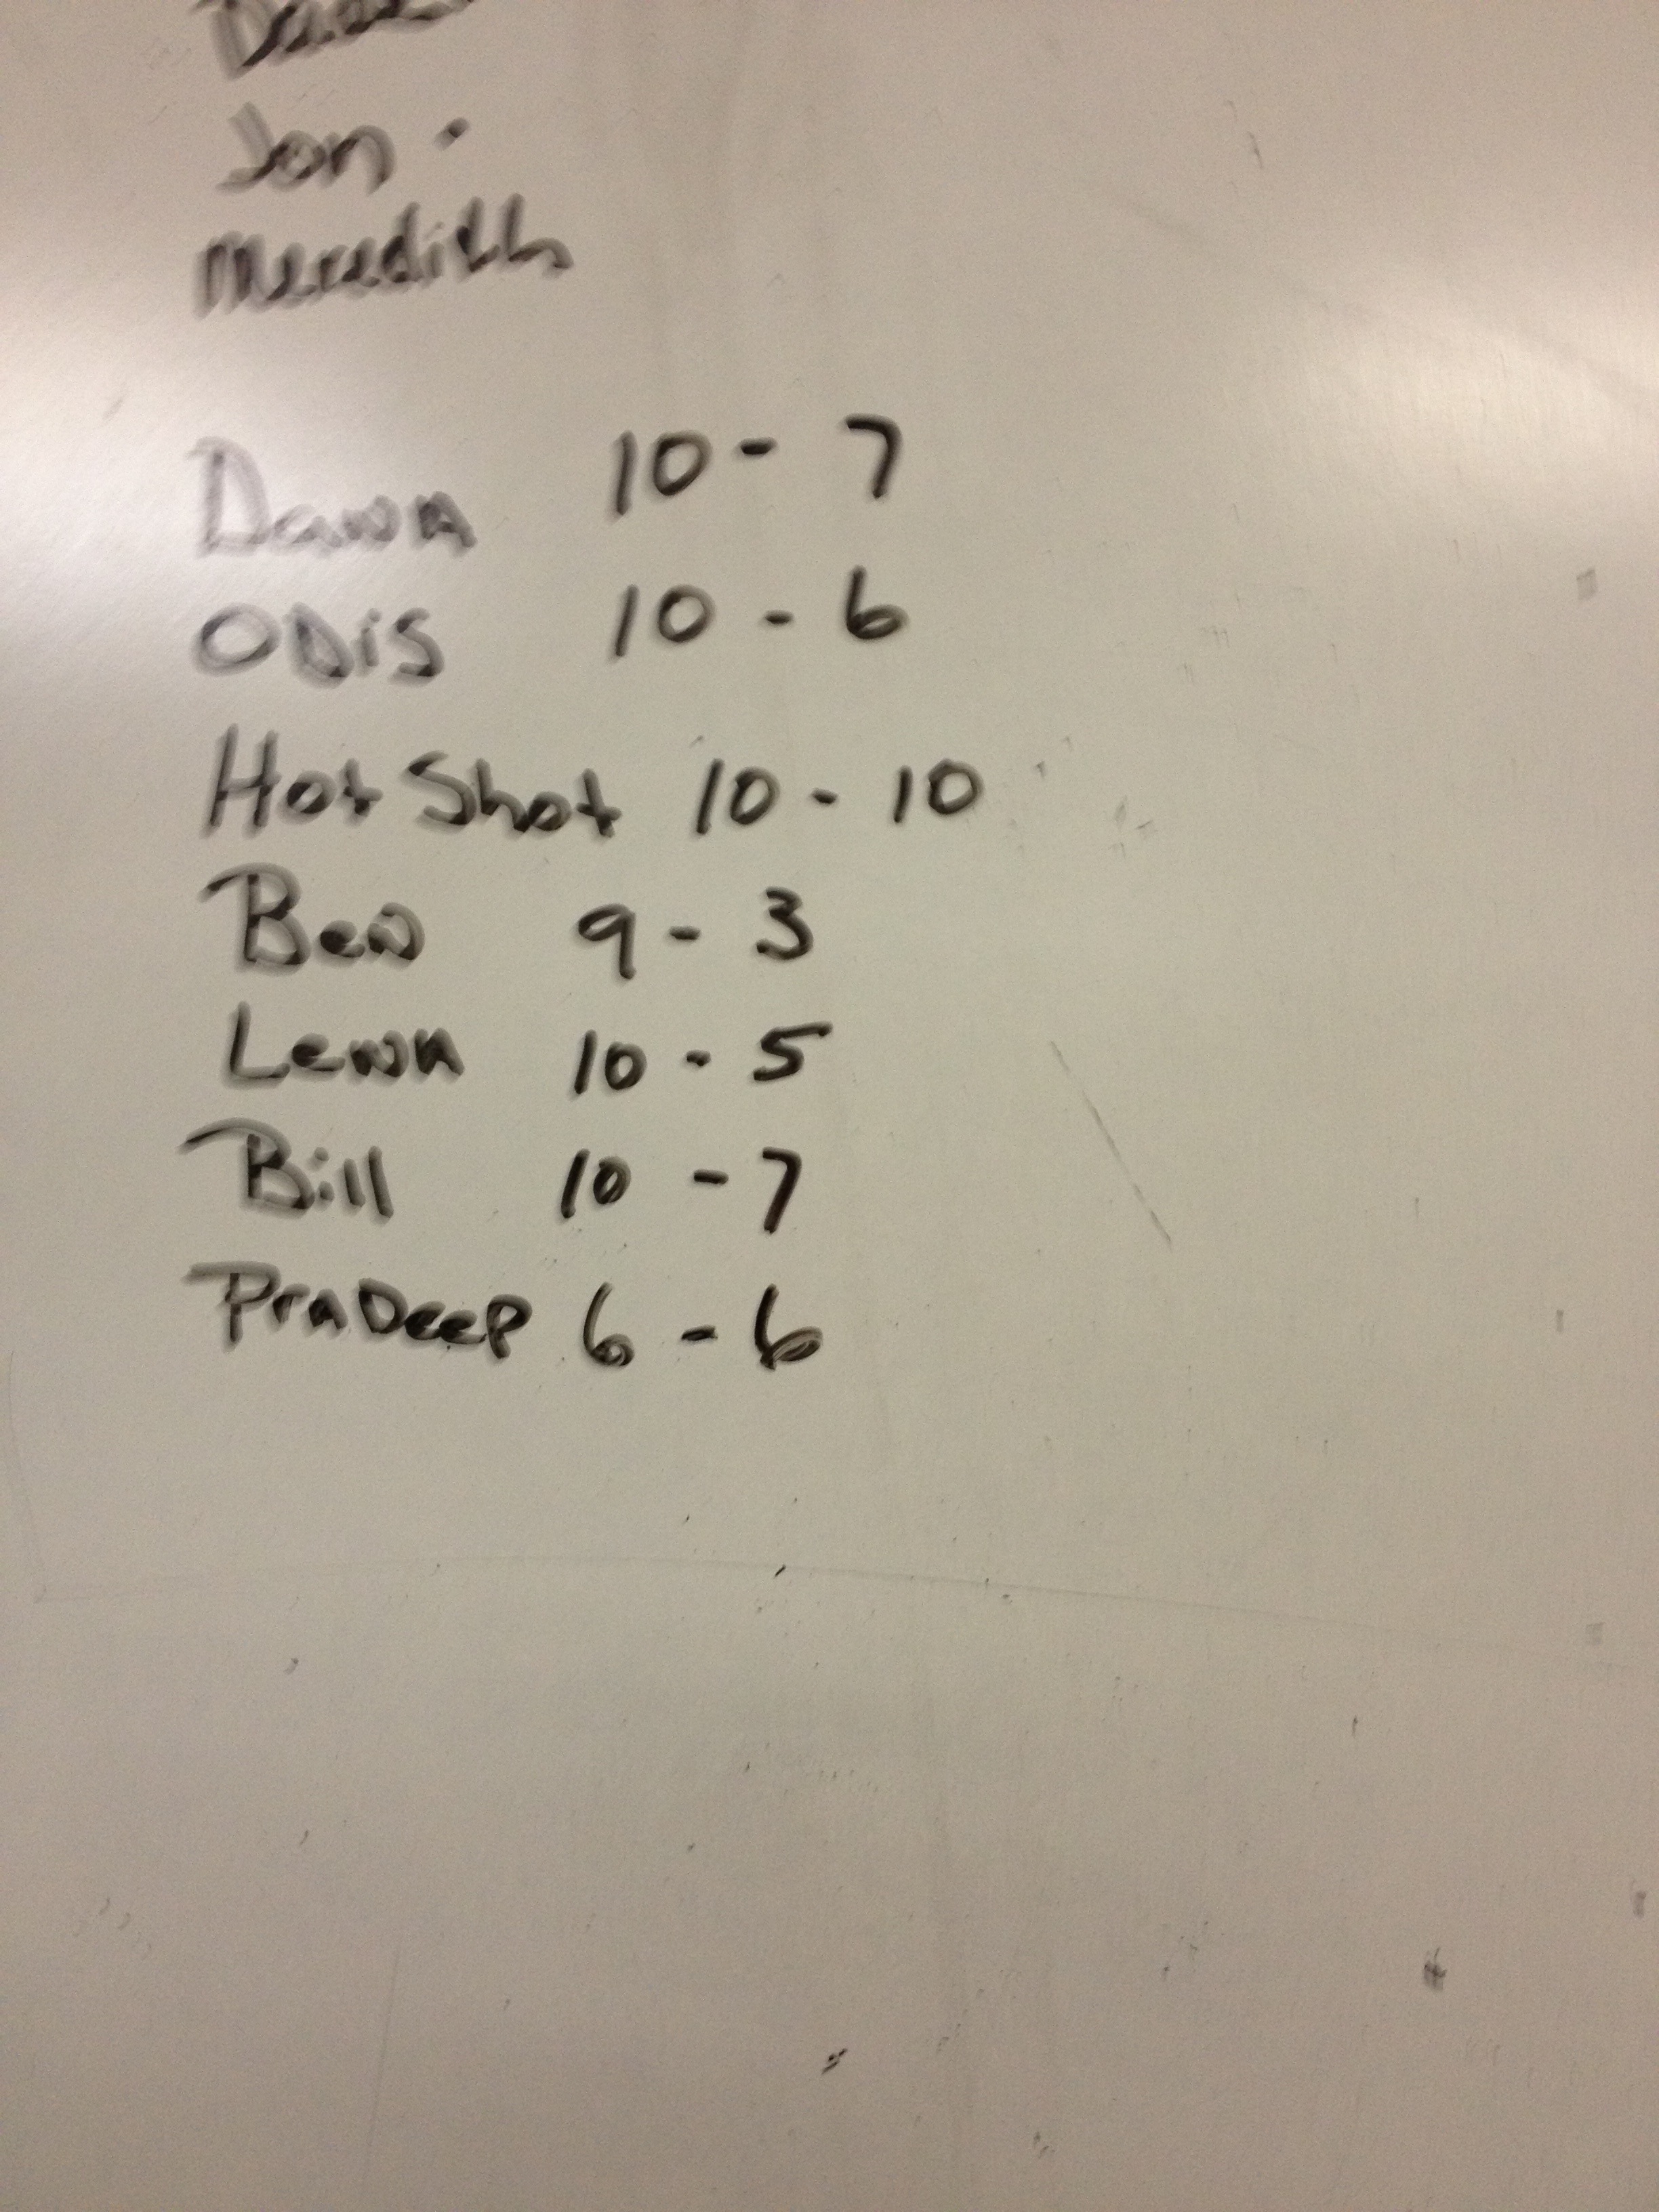 Jon -
Meredith
Dawn 10 - 7
ODiS 10 - 6
Hot Shot 10 - 10
Ben 9 - 3
Lewn 10 - 5
Bill 10 - 7
PraDeep 6 - 6